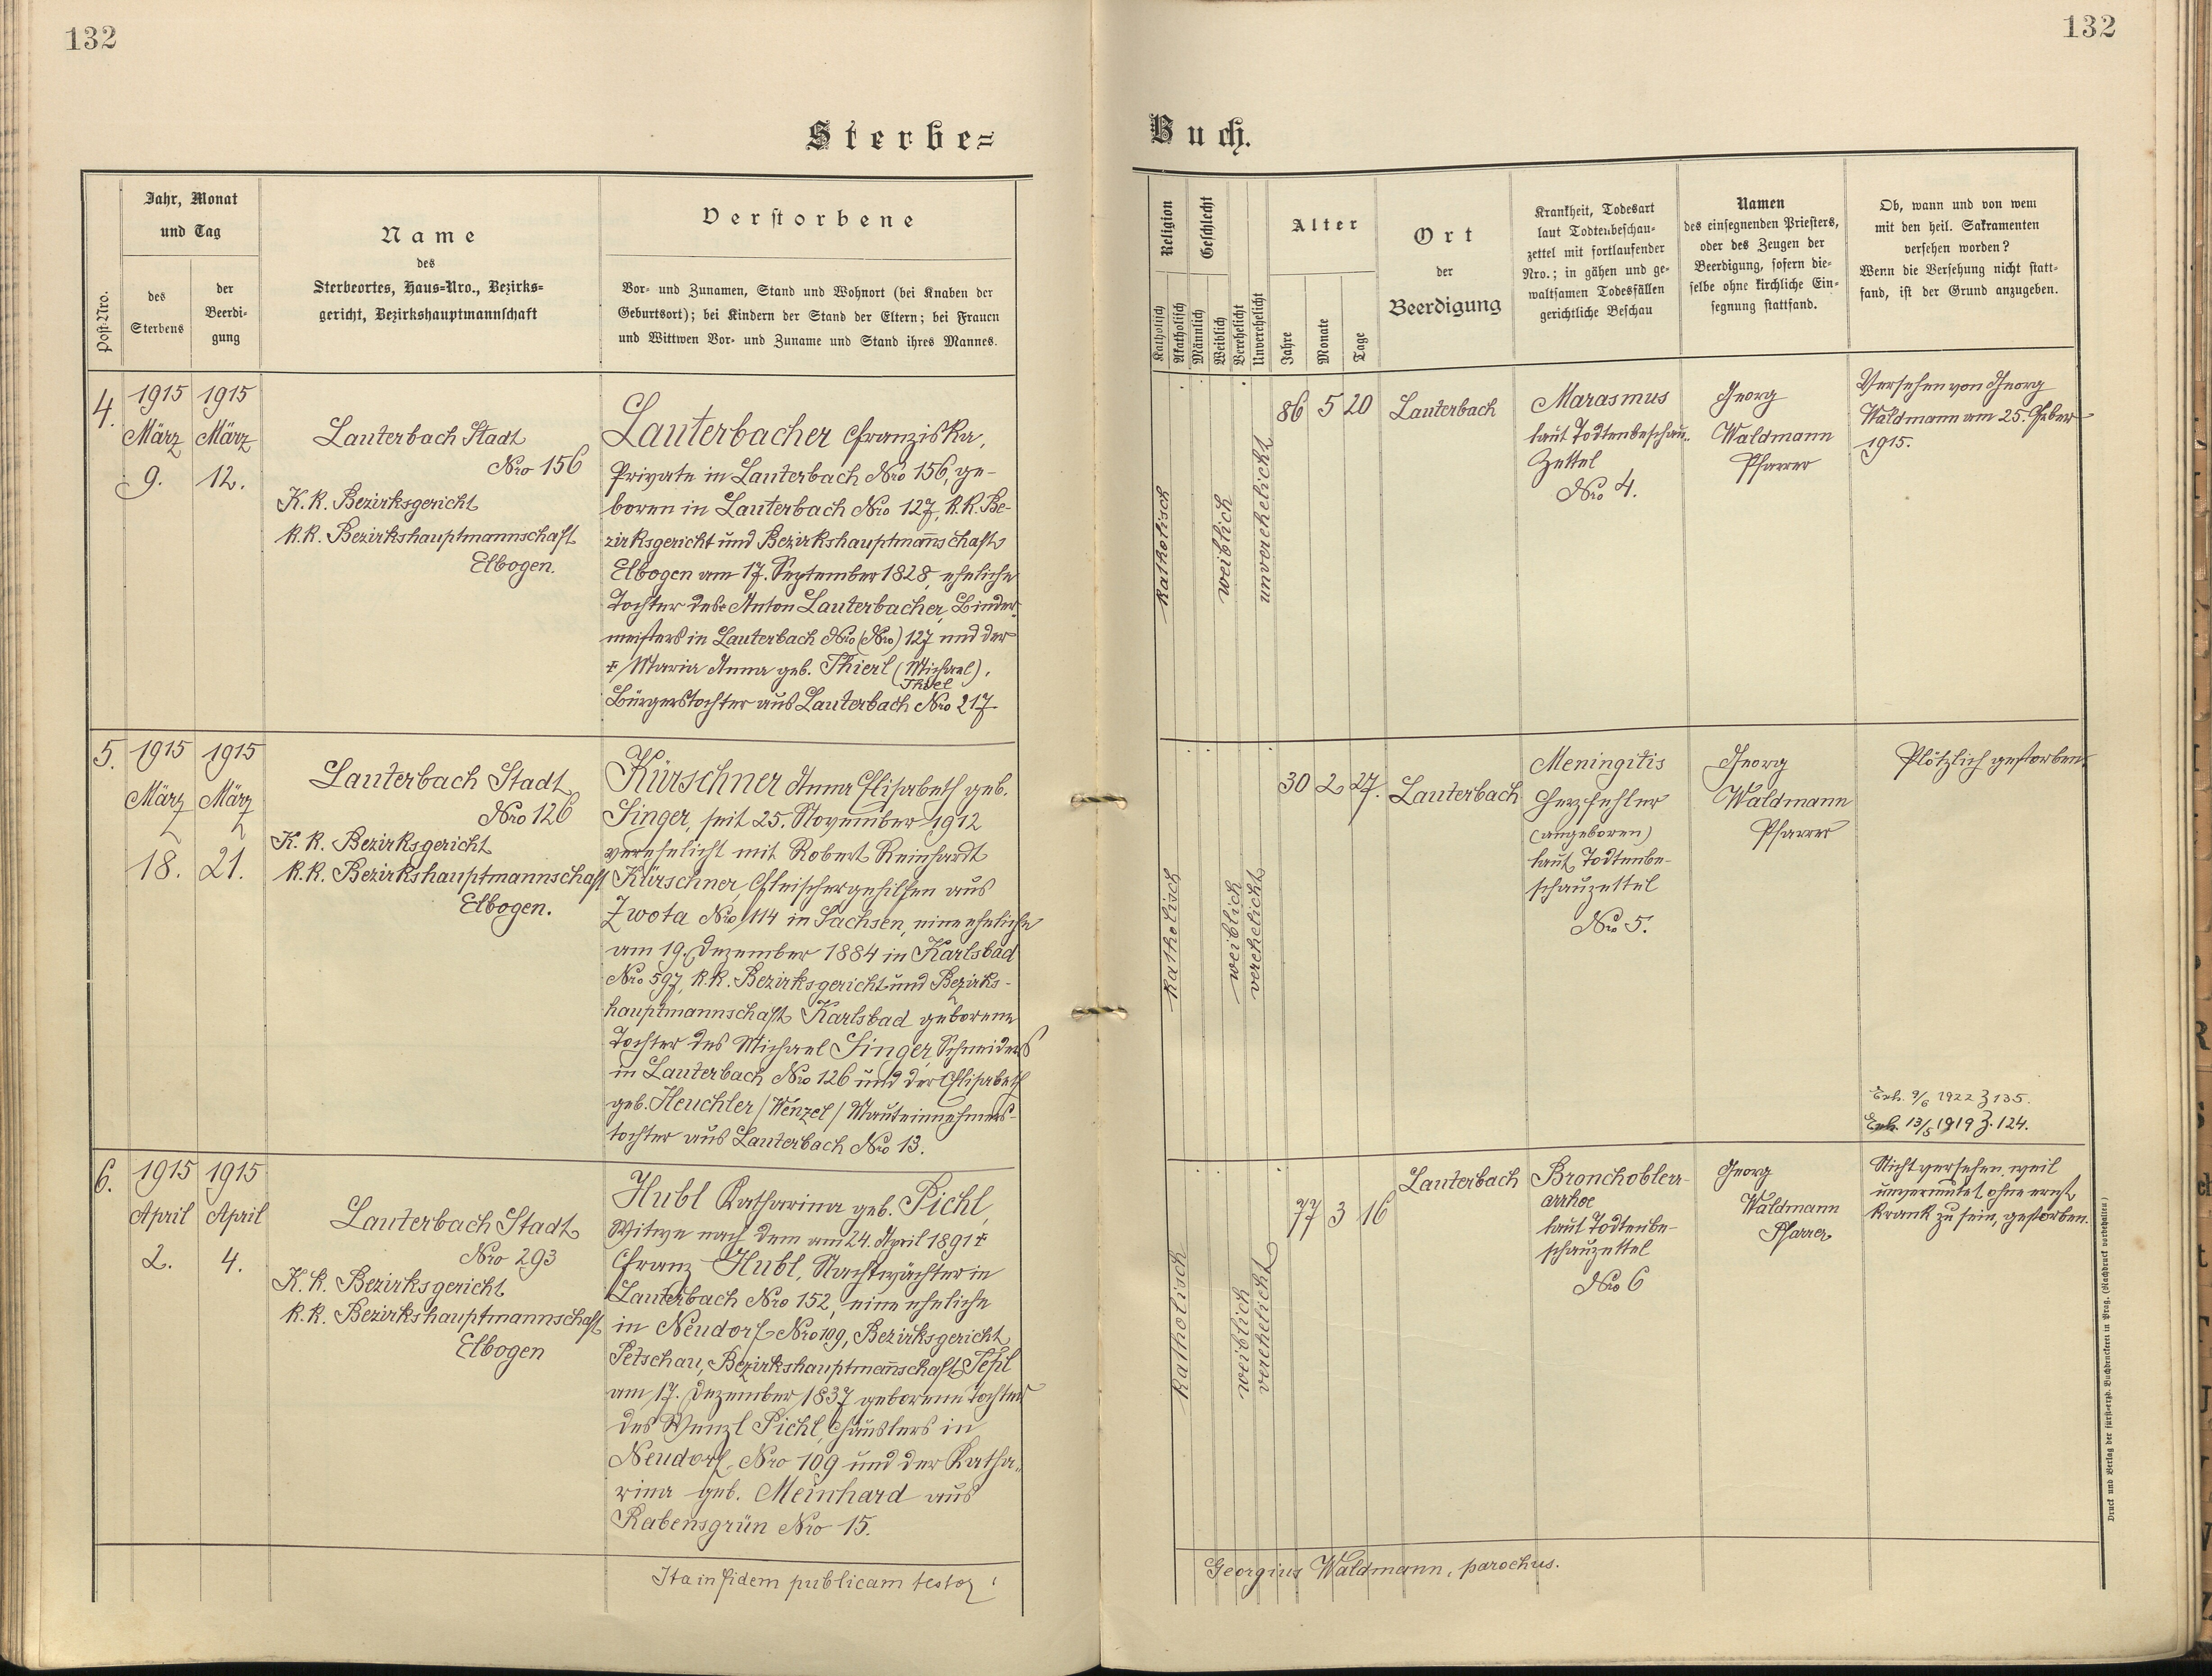 132
132
Sterbe=
Buch.
Post-Nro.
Jahr, Monat
und Tag
des
Sterbens
der
Beerdi-
gung
Name
des
Sterbeortes, Haus=Nro., Bezirks=
gericht, Bezirkshauptmannschaft
Verstorbene
Vor- und Zunamen, Stand und Wohnort (bei Knaben der
Geburtsort); bei Kindern der Stand der Eltern; bei Frauen
und Wittwen Vor- und Zuname und Stand ihres Mannes.
Religion
Katholisch
Akatholisch
Geschlecht
Männlich
Weiblich
Verehelicht
Unverehelicht
Alter
Jahre
Monate
Tage
Ort
der
Beerdigung
Krankheit, Todesart
laut Todtenbeschau-
zettel mit fortlaufender
Nro.; in gähen und ge-
waltsamen Todesfällen
gerichtliche Beschau
Namen
des einsegnenden Priesters,
oder des Zeugen der
Beerdigung, sofern die-
selbe ohne kirchliche Ein-
segnung stattfand.
Ob, wann und von wem
mit den heil. Sakramenten
versehen worden?
Wenn die Versehung nicht statt-
fand, ist der Grund anzugeben.
4.
1915
März
9.
1915
März
12.
Lauterbach Stadt
Nro 156
K.k. Bezirksgericht
k.k. Bezirkshauptmannschaft
Elbogen.
Lauterbacher Franziska,
Private in Lauterbach Nro 156, ge-
boren in Lauterbach Nro 127, k.k. Be-
zirksgericht und Bezirkshauptmannschaft
Elbogen am 17. September 1828, eheliche
Tochter des Anton Lauterbacher, Binder-
meisters in Lauterbach Nro (Nro) 127 und der
† Maria Anna geb. Thierl (Michael),
Thiel
Bürgerstochter aus Lauterbach Nro 217
katholisch
weiblich
unverehelicht
86 5 20
Lauterbach
Marasmus
laut Todtenbeschau-
Zettel
Nro 4.
Georg
Waldmann
Pfarrer
Versehen von Georg
Waldmann am 25. Feber
1915.
5.
1915
März
18.
1915
März
21.
Lauterbach Stadt
Nro 126
K.k. Bezirksgericht
k.k. Bezirkshauptmannschaft
Elbogen.
Kürschner Anna Elisabeth geb.
Singer, seit 25. November 1912
verehelicht mit Robert Reinhardt
Kürschner, Fleischergehilfen aus
Zwota Nro 114 in Sachsen, eine eheliche
am 19. Dezember 1884 in Karlsbad
Nro 597, k.k. Bezirksgericht und Bezirks-
hauptmannschaft Karlsbad geborene
Tochter des Michael Singer, Schneiders
in Lauterbach Nro 126 und der Elisabeth
geb. Heuchler /Wenzel/ Mauteinnehmers-
tochter aus Lauterbach Nro 13.
katholisch
weiblich
verehelicht
30 2 27.
Lauterbach
Meningitis
Herzfehler
(angeboren)
laut Todtenbe-
schauzettel
Nro 5.
Georg
Waldmann
Pfarrer
Plötzlich gestorben.
Exh. 9/6 1922 Z 135.
Exh. 13/5 1919 Z. 124.
6.
1915
April
2.
1915
April
4.
Lauterbach Stadt
Nro 293
K.k. Bezirksgericht
k.k. Bezirkshauptmannschaft
Elbogen
Hubl Katharina geb. Pichl,
Witwe nach dem am 24. April 1891 †
Franz Hubl, Nachtwächter in
Lauterbach Nro 152, eine eheliche
in Neudorf Nro 109, Bezirksgericht
Petschau, Bezirkshauptmannschaft Tepl
am 17. Dezember 1837 geborene Tochter
des Wenzl Pichl, Häuslers in
Neudorf Nro 109 und der Katha-
rina geb. Meinhard aus
Rabensgrün Nro 15.
katholisch
weiblich
verehelicht
77 3 16
Lauterbach
Bronchoblen-
arrhoe
laut Todtenbe-
schauzettel
Nro 6
Georg
Waldmann
Pfarrer
Nicht versehen, weil
unvermutet, ohne ernst
krank zu sein, gestorben.
Ita in fidem publicam testor
Georgius Waldmann, parochus.
Druck und Verlag der fürst-erzb. Buchdruckerei in Prag. (Nachdruck vorbehalten)